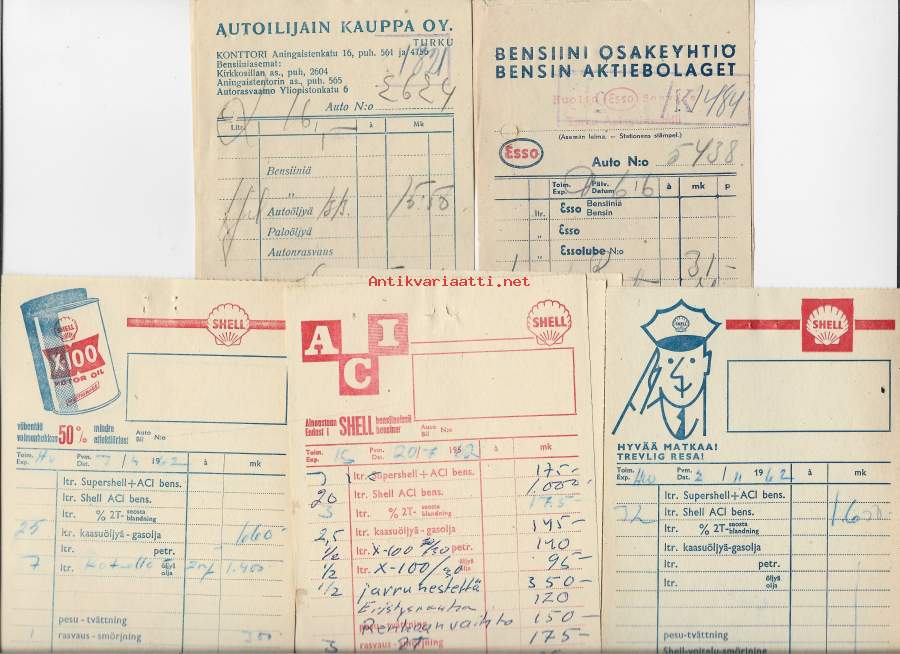 AUTOILIJAIN KAUPPA OY.
TURKU
KONTTORI Aningaistenkatu 16, puh. 561 ja 4756
Bensiiniasemat:
Kirkkosillan as., puh. 2604
Aningaistentorin as., puh. 565
Autorasvaamo Yliopistonkatu 6
Auto N:o
Litr. à Mk
Bensiiniä
„
Autoöljyä 15.50
Paloöljyä
Autonrasvaus
BENSIINI OSAKEYHTIÖ
BENSIN AKTIEBOLAGET
Huolto Esso Service
(Aseman leima. – Stationens stämpel.)
Esso Auto N:o 5438
Toim. Exp. Päiv. Datum 6/6 à mk p
ltr. Esso Bensiiniä Bensin
„ Esso
„ Essolube N:o
31,-
Antikvariaatti.net
SHELL
X-100
MOTOR OIL
vähentää 50% mindre
Auto Bil N:o
Toim. Exp. Pvm. Dat. 1962 à mk
ltr. Supershell+ACI bens.
ltr. Shell ACI bens.
ltr. % 2T- seosta blandning
25 ltr. kaasuöljyä-gasolja
ltr. petr.
7 ltr. öljyä olja 1.400
pesu - tvättning
1 rasvaus - smörjning
ACI
SHELL
Ainoastaan Endast i SHELL bensiineissä bensiner
Auto Bil N:o
Toim. Exp. Pvm. Dat. 20/7 1962 à mk
ltr. Supershell+ACI bens. 175-
20 ltr. Shell ACI bens. 1000-
3 ltr. % 2T- seosta blandning 175
2,5 ltr. kaasuöljyä-gasolja
1/2 ltr. X-100 petr. 140
1/2 ltr. X-100/30 öljyä olja 95-
1/2 jarrunestettä 350-
120
pesu - tvättning Renkaanvaihto 150-
3 rasvaus - smörjning 175-
SHELL
HYVÄÄ MATKAA!
TREVLIG RESA!
Toim. Exp. Pvm. Dat. 2/11 1962 à mk
ltr. Supershell+ACI bens.
32 ltr. Shell ACI bens.
ltr. % 2T- seosta blandning
ltr. kaasuöljyä-gasolja
ltr. petr.
ltr. öljyä olja
pesu-tvättning
Shell-voitelu-smörjning